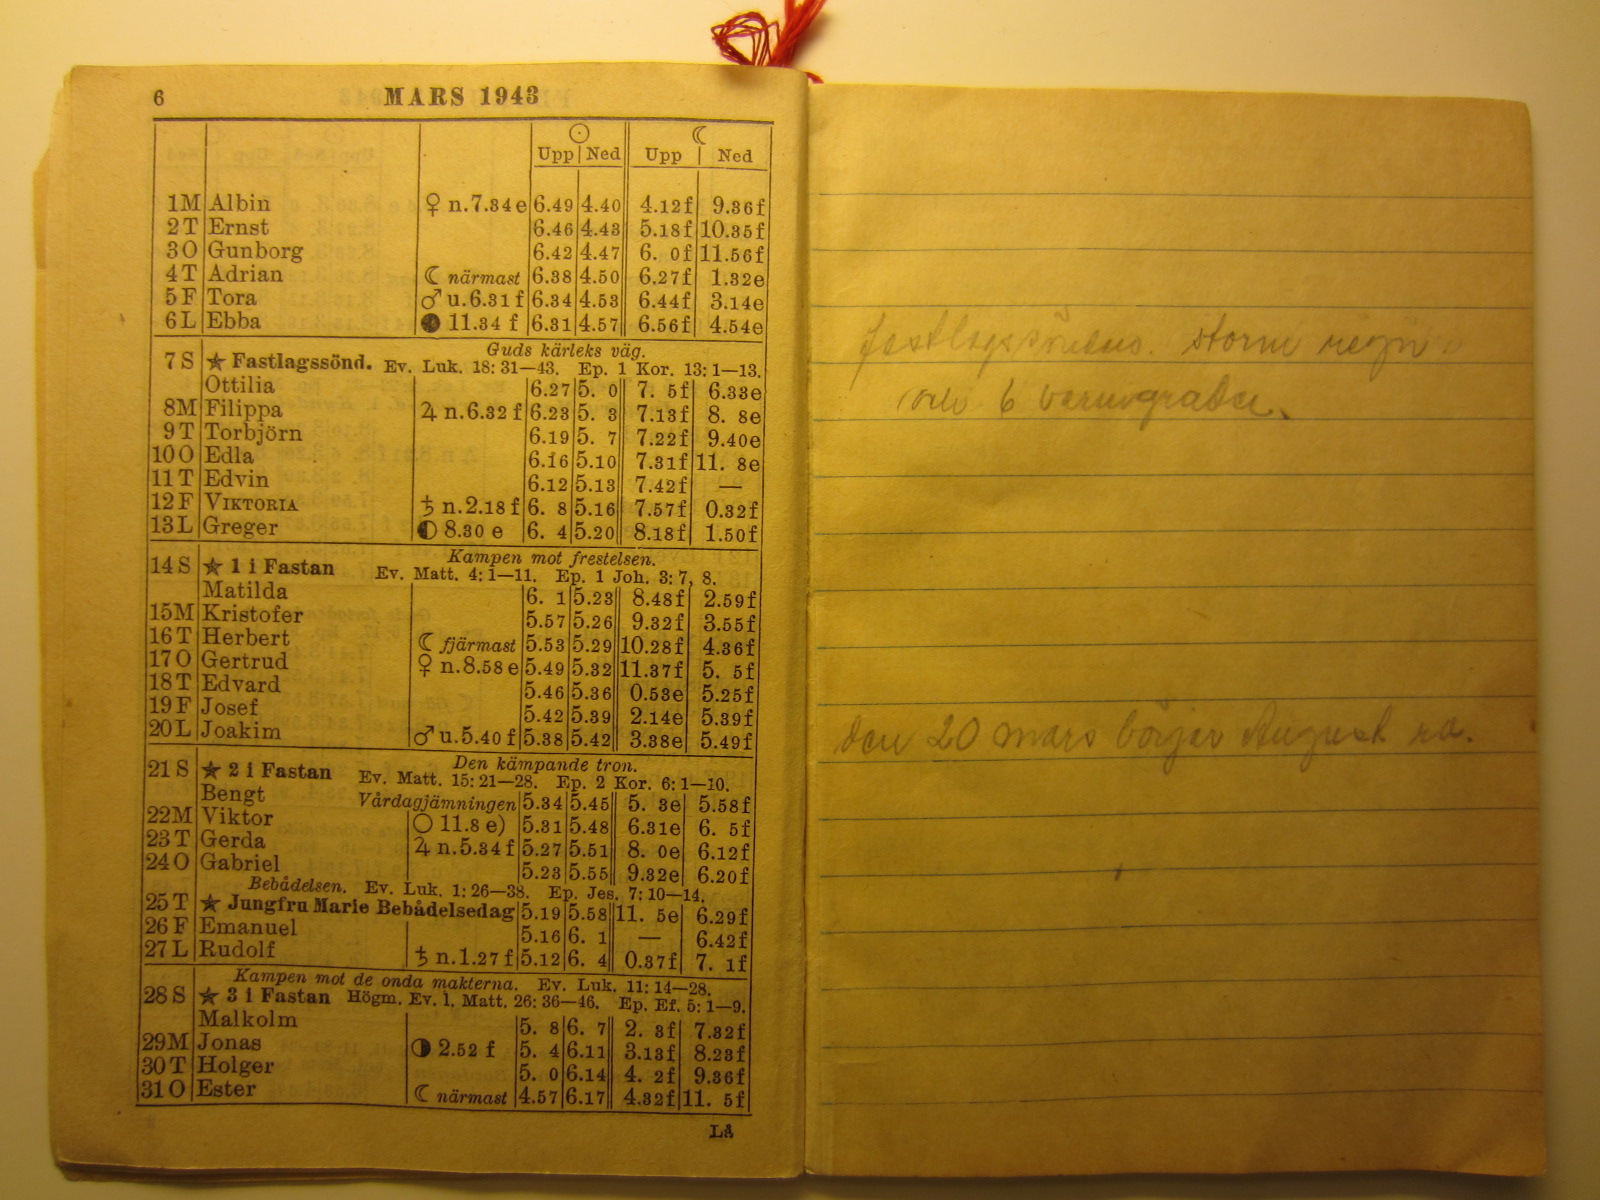 6 MARS 1943
☉ ☾
Upp Ned Upp Ned
1 M Albin ♀ n.7.34e 6.49 4.40 4.12f 9.36f
2 T Ernst 6.46 4.43 5.18f 10.35f
3 O Gunborg 6.42 4.47 6. 0f 11.56f
4 T Adrian ☾ närmast 6.38 4.50 6.27f 1.32e
5 F Tora ♂ u.6.31 f 6.34 4.53 6.44f 3.14e
6 L Ebba ● 11.34 f 6.31 4.57 6.56f 4.54e
Guds kärleks väg.
7 S ★ Fastlagssönd. Ev. Luk. 18: 31—43. Ep. 1 Kor. 13: 1—13.
Ottilia 6.27 5. 0 7. 5f 6.33e
8 M Filippa ♃ n.6.32 f 6.23 5. 3 7.13f 8. 8e
9 T Torbjörn 6.19 5. 7 7.22f 9.40e
10 O Edla 6.16 5.10 7.31f 11. 8e
11 T Edvin 6.12 5.13 7.42f —
12 F VIKTORIA ♄ n.2.18 f 6. 8 5.16 7.57f 0.32f
13 L Greger ◐ 8.30 e 6. 4 5.20 8.18f 1.50f
Kampen mot frestelsen.
14 S ★ 1 i Fastan Ev. Matt. 4: 1—11. Ep. 1 Joh. 3: 7, 8.
Matilda 6. 1 5.23 8.48f 2.59f
15 M Kristofer 5.57 5.26 9.32f 3.55f
16 T Herbert ☾ fjärmast 5.53 5.29 10.28f 4.36f
17 O Gertrud ♀ n.8.58 e 5.49 5.32 11.37f 5. 5f
18 T Edvard 5.46 5.36 0.53e 5.25f
19 F Josef 5.42 5.39 2.14e 5.39f
20 L Joakim ♂ u.5.40 f 5.38 5.42 3.38e 5.49f
Den kämpande tron.
21 S ★ 2 i Fastan Ev. Matt. 15: 21—28. Ep. 2 Kor. 6: 1—10.
Bengt Vårdagjämningen 5.34 5.45 5. 3e 5.58f
22 M Viktor ○ 11.8 e) 5.31 5.48 6.31e 6. 5f
23 T Gerda ♃ n.5.34 f 5.27 5.51 8. 0e 6.12f
24 O Gabriel 5.23 5.55 9.32e 6.20f
Bebådelsen. Ev. Luk. 1: 26—38. Ep. Jes. 7: 10—14.
25 T ★ Jungfru Marie Bebådelsedag 5.19 5.58 11. 5e 6.29f
26 F Emanuel 5.16 6. 1 — 6.42f
27 L Rudolf ♄ n.1.27 f 5.12 6. 4 0.37f 7. 1f
Kampen mot de onda makterna. Ev. Luk. 11: 14—28.
28 S ★ 3 i Fastan Högm. Ev. 1. Matt. 26: 36—46. Ep. Ef. 5: 1—9.
Malkolm 5. 8 6. 7 2. 3f 7.32f
29 M Jonas ◑ 2.52 f 5. 4 6.11 3.13f 8.23f
30 T Holger 5. 0 6.14 4. 2f 9.36f
31 O Ester ☾ närmast 4.57 6.17 4.32f 11. 5f
LÅ
storm regn
6 varmgrader.
den 20 mars börjar August